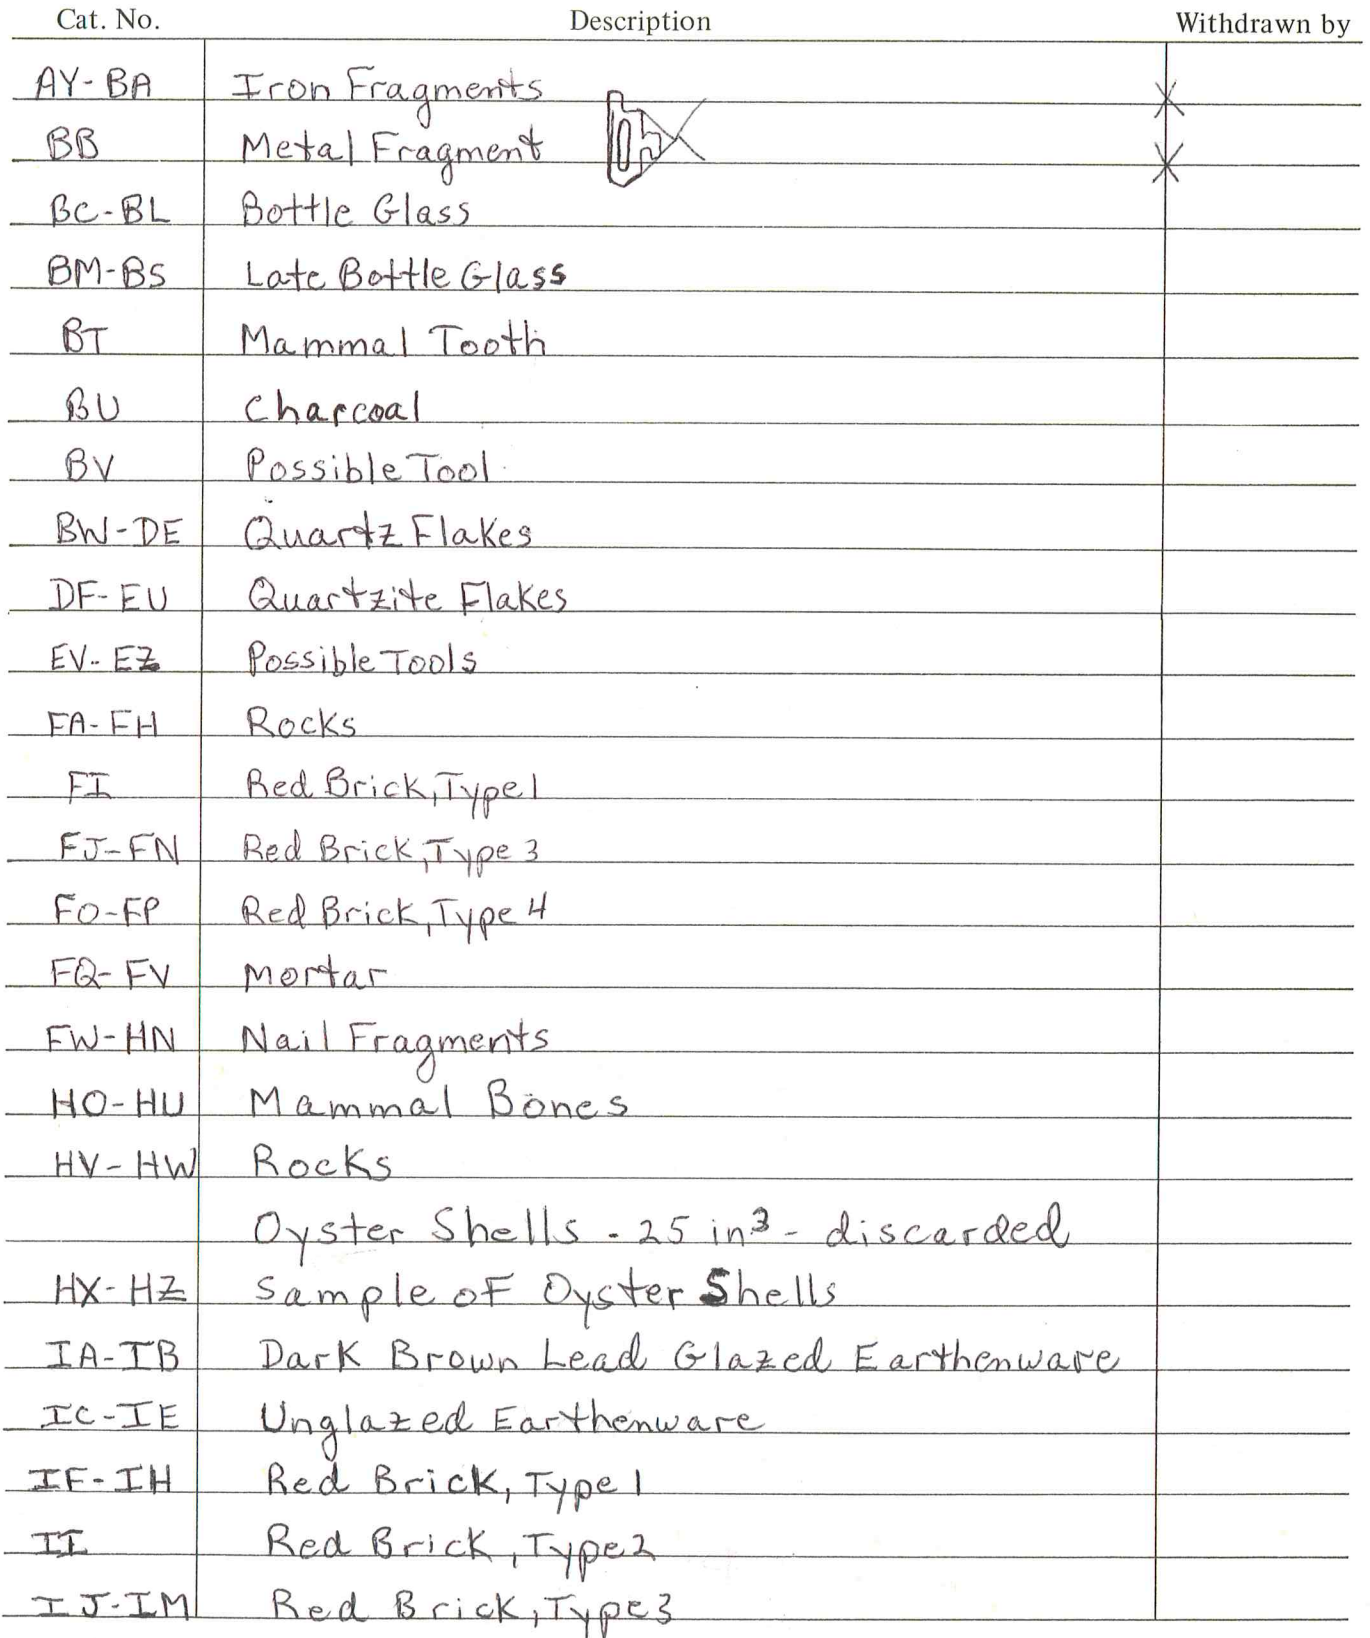 Cat. No. Description Withdrawn by
AY-BA Iron Fragments X
BB Metal Fragment X
BC-BL Bottle Glass
BM-BS Late Bottle Glass
BT Mammal Tooth
BU Charcoal
BV Possible Tool
BW-DE Quartz Flakes
DF-EU Quartzite Flakes
EV-EZ Possible Tools
FA-FH Rocks
FI Red Brick, Type 1
FJ-FN Red Brick, Type 3
FO-FP Red Brick, Type 4
FQ-FV Mortar
FW-HN Nail Fragments
HO-HU Mammal Bones
HV-HW Rocks
Oyster Shells - 25 in³ - discarded
HX-HZ Sample of Oyster Shells
IA-IB Dark Brown Lead Glazed Earthenware
IC-IE Unglazed Earthenware
IF-IH Red Brick, Type 1
II Red Brick, Type 2
IJ-IM Red Brick, Type 3